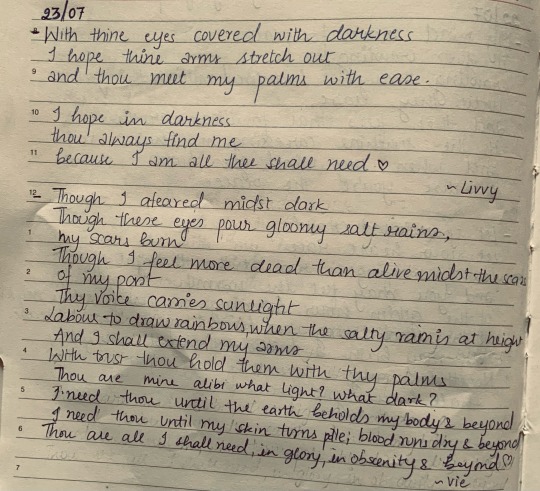 23/07
With thine eyes covered with darkness
I hope thine arms stretch out
9 and thou meet my palms with ease.
10 I hope in darkness
thou always find me
11 because I am all thee shall need ♡
~ Livvy
12 Though I afeared midst dark
Though these eyes pour gloomy salt rains,
1 my scars burn
Though I feel more dead than alive midst the scars
2 of my past
Thy voice carries sunlight
3 Labour to draw rainbows, when the salty rain is at height
And I shall extend my arms
4 With trust thou hold them with thy palms
Thou are mine alibi what light? what dark?
5 I need thou until the earth beholds my body & beyond
I need thou until my skin turns pale; blood runs dry & beyond
6 Thou are all I shall need, in glory, in obscenity & beyond ♡
7 ~ Vie